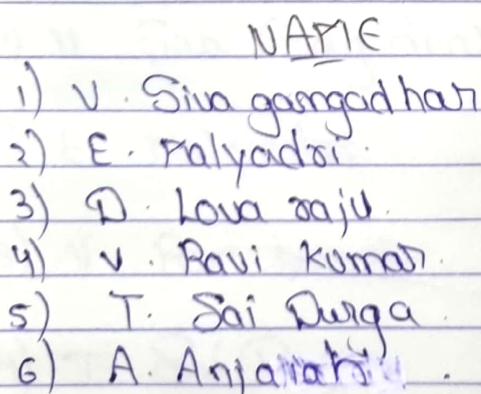 NAME
1) V. Siva gangadhar
2) E. Malyadri.
3) D. Lova raju.
4) V. Ravi Kumar.
5) T. Sai Durga.
6) A.